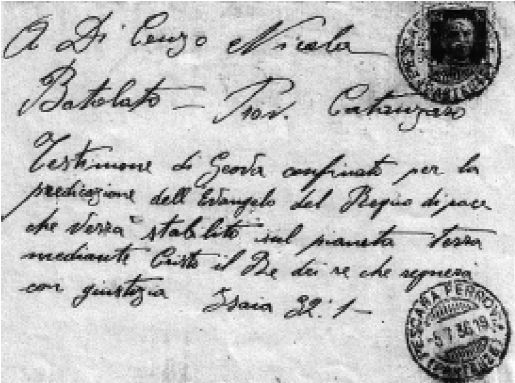 A Di Cenzo Nicola
Botolato = Prov. Catanzaro
Testimone di Geova confinato per la
predicazione dell Evangelo del Regno di pace
che verrà stabilito sul pianeta terra
mediante Cristo il Re dei re che regnerà
con giustizia Isaia 32:1-
PESCARA FERROVIA
-5.7.36.19
(PARTENZE)